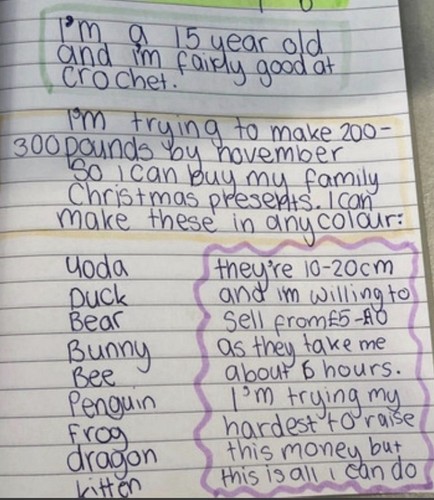 I'm a 15 year old
and i'm fairly good at
crochet.
I'm trying to make 200-
300 pounds by november
So i can buy my family
Christmas presents. I can
make these in any colour:
Yoda
Duck
Bear
Bunny
Bee
Penguin
Frog
dragon
kitten
they're 10-20cm
and im willing to
sell from £5-£10
as they take me
about 6 hours.
I'm trying my
hardest to raise
this money but
this is all i can do